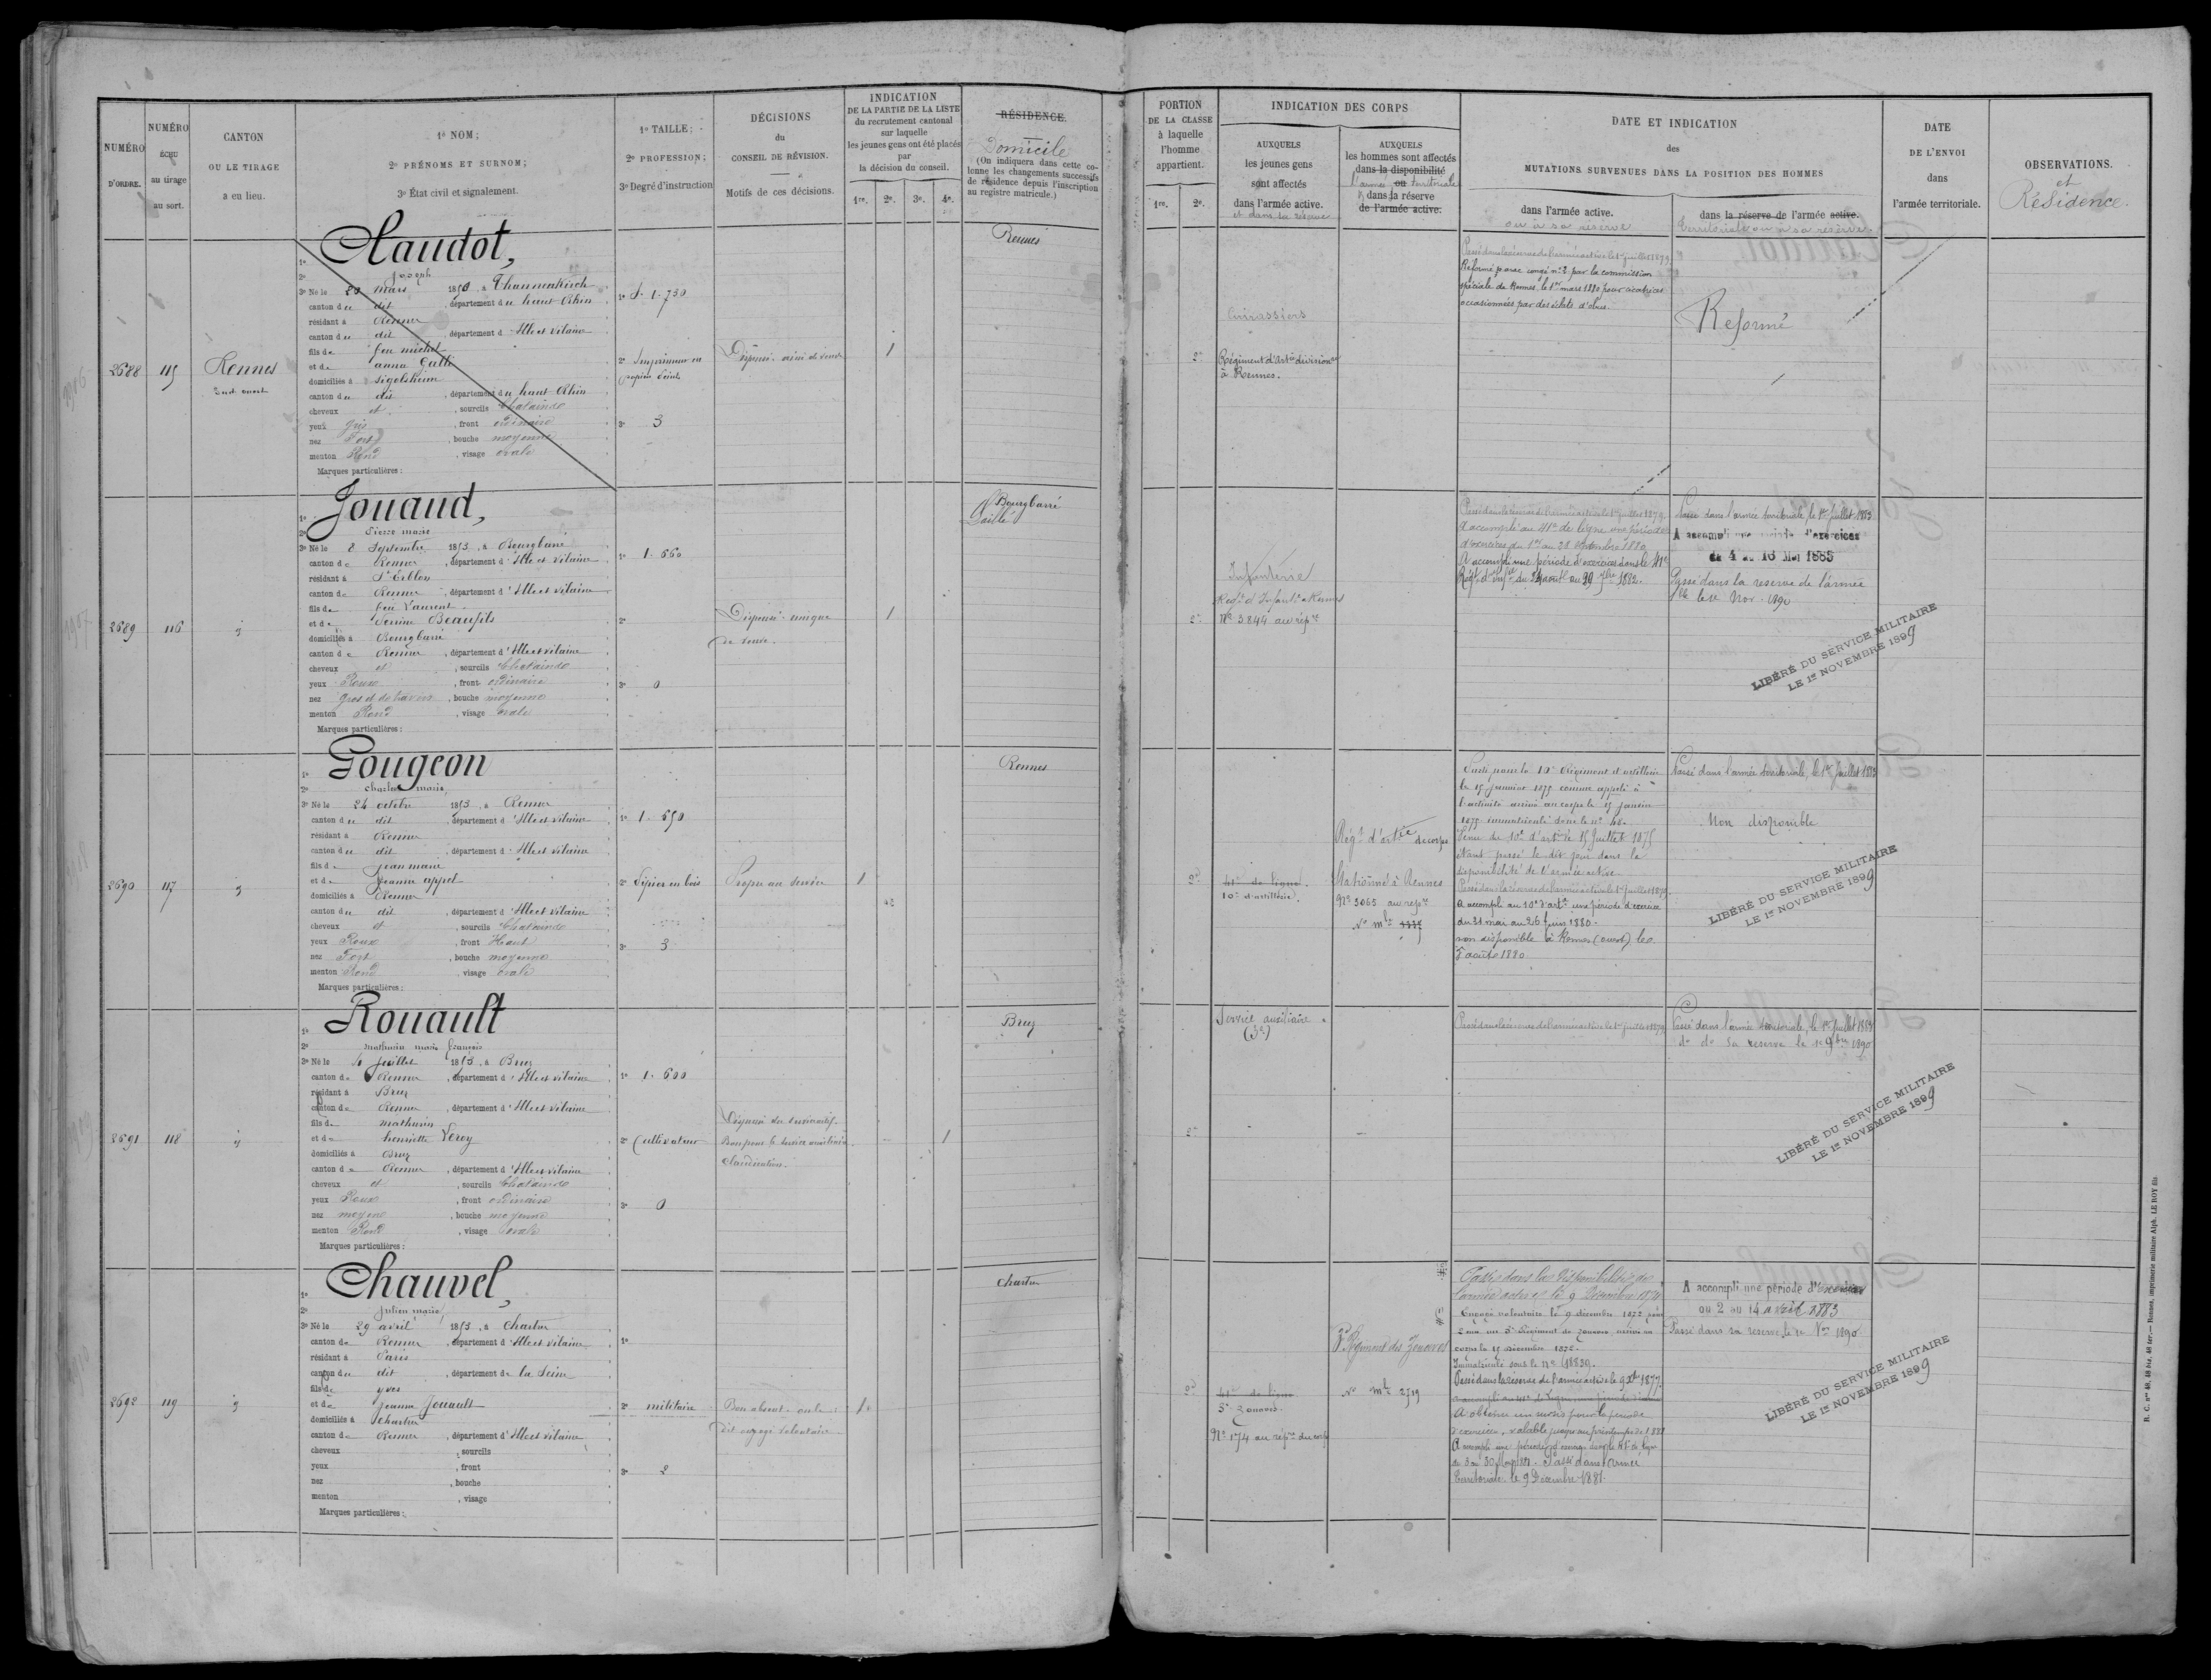 NUMÉRO
D'ORDRE.
NUMÉRO
ÉCHU
au tirage
au sort.
CANTON
OU LE TIRAGE
a eu lieu.
1º NOM;
2º PRÉNOMS ET SURNOM;
3º État civil et signalement.
1º TAILLE;
2º PROFESSION;
3º Degré d'instruction
DÉCISIONS
du
CONSEIL DE RÉVISION.
Motifs de ces décisions.
INDICATION
DE LA PARTIE DE LA LISTE
du recrutement cantonal
sur laquelle
les jeunes gens ont été placés
par
la décision du conseil.
1re. 2e. 3e. 4e.
RÉSIDENCE.
Domicile
(On indiquera dans cette co-
lonne les changements successifs
de résidence depuis l'inscription
au registre matricule.)
PORTION
DE LA CLASSE
à laquelle
l'homme
appartient.
1re. 2e.
INDICATION DES CORPS
AUXQUELS
les jeunes gens
sont affectés
dans l'armée active.
et dans sa réserve
AUXQUELS
les hommes sont affectés
dans la disponibilité
l'armée ou territoriale
dans la réserve
de l'armée active.
DATE ET INDICATION
des
MUTATIONS SURVENUES DANS LA POSITION DES HOMMES
dans l'armée active.
ou à sa réserve
dans la réserve de l'armée active.
Territoriale ou à sa réserve
DATE
DE L'ENVOI
dans
l'armée territoriale.
OBSERVATIONS.
et
Résidence.
2688
115
Rennes
Sud ouest
1º
2º Joseph
3º Né le 20 mars 1853, à Thannenkirch
canton du dit, département du haut-Rhin
résidant à Rennes
canton du dit, département d'Ille et Vilaine
fils de feu michel
et de anna Galli
domiciliés à Sigolsheim
canton du dit, département du haut-Rhin
cheveux et, sourcils Chatains
yeux gris, front ordinaire
nez Fort, bouche moyenne
menton Rond, visage ovale
Marques particulières:
1º 1.730
2º Imprimeur en
papier peint
3º 3
1
Rennes
2e
Cuirassiers
Régiment d'Artie division
à Rennes.
Passé dans la réserve de l'armée active le 1er juillet 1879.
Réformé par congé nº 2 par la commission
spéciale de Rennes, le 1er mars 1880 pour cicatrices
occasionnées par des éclats d'obus.
Reformé
2689
116
Jouaud,
2º Pierre marie
3º Né le 8 Septembre 1853, à Bourgbarré
canton de Rennes, département d'Ille et Vilaine
résidant à St Erblon
canton de Rennes, département d'Ille et Vilaine
fils de feu Laurent
et de Perrine Beaufils
domiciliés à Bourgbarré
canton de Rennes, département d'Ille et Vilaine
cheveux et, sourcils Chatains
yeux Roux, front ordinaire
nez gros, bouche moyenne
menton Rond, visage ovale
Marques particulières:
1º 1.660
2º
3º 0
Dispensé unique
de veuve
1
Bourgbarré
Laillé
2e
Infanterie
Régt d'Infantie Rennes
Nº 3844 au répre
Passé dans la réserve de l'armée active le 1er juillet 1879.
A accompli au 41e de ligne une période
d'exercices du 1er au 28 septembre 1880
A accompli une période d'exercices dans le 41e
Régt d'Infie du 24 août au 20 7bre 1882.
Passé dans l'armée territoriale, le 1er juillet 1883
A accompli une période d'exercices
du 4 au 16 Mai 1885
Passé dans la réserve de l'armée
Nov. 1890
LIBÉRÉ DU SERVICE MILITAIRE
LE 1er NOVEMBRE 1899
2690
117
Gougeon
2º charles marie,
3º Né le 24 octobre 1853, à Rennes
canton du dit, département d'Ille et Vilaine
résidant à Rennes
canton du dit, département d'Ille et Vilaine
fils de Jean marie
et de Jeanne appel
domiciliés à Rennes
canton du dit, département d'Ille et Vilaine
cheveux et, sourcils Chatains
yeux Roux, front Haut
nez Fort, bouche moyenne
menton Rond, visage ovale
Marques particulières:
1º 1.650
2º Pipier en bois
3º 3
Propre au service
1
Rennes
2e
41e de ligne.
10e d'artillerie.
Régt d'artie de corps
Stationné à Rennes
Nº 3065 au répre
Nº mle
Parti pour le 10e Régiment d'artillerie
le 15 janvier 1875 comme appelé à
l'activité arrivé au corps le 15 janvier
1875 immatriculé sous le nº
Venu du 10e d'artie le 15 Juillet 1875
étant passé le dit jour dans la
disponibilité de l'armée active
Passé dans la réserve de l'armée active le 1er juillet 1879.
A accompli au 10e d'artie une période d'exercice
du 31 mai au 26 juin 1880.
non disponible à Rennes (ouest) le
août 1880
Passé dans l'armée territoriale, le 1er Juillet 1883
Non disponible
LIBÉRÉ DU SERVICE MILITAIRE
LE 1er NOVEMBRE 1899
2691
118
Rouault
2º mathurin marie françois
3º Né le 4 juillet 1853, à Bruz
canton de Rennes, département d'Ille et Vilaine
résidant à Bruz
canton de Rennes, département d'Ille et Vilaine
fils de mathurin
et de henriette Leroy
domiciliés à Bruz
canton de Rennes, département d'Ille et Vilaine
cheveux et, sourcils Chatains
yeux Roux, front ordinaire
nez moyen, bouche moyenne
menton Rond, visage ovale
Marques particulières:
1º 1.600
2º Cultivateur
3º 0
Dispensé du service actif
Bon pour le service auxiliaire
Claudication.
1
Bruz
2e
Service auxiliaire
Passé dans la réserve de l'armée active le 1er juillet 1879.
Passé dans l'armée territoriale, le 1er Juillet 1883
do do sa reserve le 1er 9bre 1890
LIBÉRÉ DU SERVICE MILITAIRE
LE 1er NOVEMBRE 1899
2692
119
Chauvel,
2º Julien marie
3º Né le 29 avril 1853, à Chartres
canton de Rennes, département d'Ille et Vilaine
résidant à Paris
canton du dit, département de la Seine
fils de yves
et de Jeanne Jouault
domiciliés à Chartres
canton de Rennes, département d'Ille et Vilaine
cheveux, sourcils
yeux, front
nez, bouche
menton, visage
Marques particulières:
1º
2º militaire
3º 2
Bon absent
Dit engagé volontaire
1
Chartres
2e
41e de ligne
3e Zouaves.
Nº 174 au répre du corps
Régiment des Zouaves
Nº mle 2719
Passé dans la disponibilité de
l'armée active le 9 Décembre 1874
Engagé volontaire le 9 décembre 1872 pour
au 3e Régiment de Zouaves arrivé au
corps le 15 décembre 1872.
Immatriculé sous le nº
Passé dans la réserve de l'armée active le 9 Xbre 1877.
A obtenu un sursis pour la période
d'exercices, valable jusqu'au printemps de 1881
A accompli une période d'exercices dans le 41e de ligne
Passé dans l'armée
Territoriale le 9 Décembre 1881.
A accompli une période d'exercices
du 2 au 14 avril 1883
Passé dans sa reserve le 1er Nov 1890
LIBÉRÉ DU SERVICE MILITAIRE
LE 1er NOVEMBRE 1899
R. C. nos 48, 48 bis, 48 ter. — Rennes, imprimerie militaire Alph. LE ROY fils